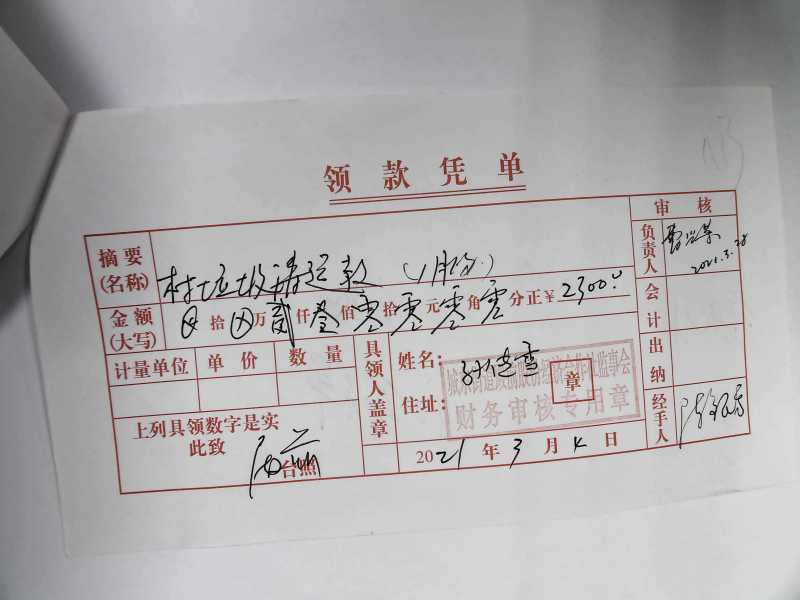 领款凭单
审核
摘要
(名称)
村垃圾清运款(1月份.)
负责人
2021.3.28
金额
(大写)
拾 万 贰仟叁佰零拾零元零角零分正¥2300.
会计
计量单位 单价 数量
具领人盖章
姓名:
住址:
监事会
财务审核专用章
章
出纳
上列具领数字是实
此致
台照
经手人
2021年3月 日